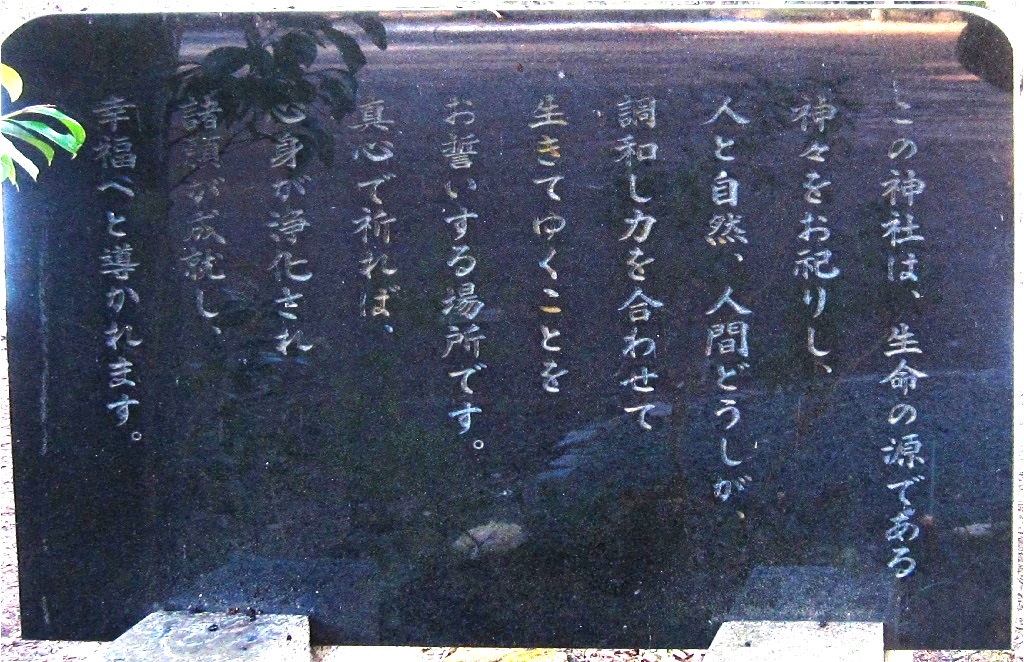 この神社は、生命の源である
神々をお祀りし、
人と自然、人間どうしが、
調和し力を合わせて
生きてゆくことを
お誓いする場所です。
真心で祈れば、
心身が浄化され
諸願が成就し、
幸福へと導かれます。